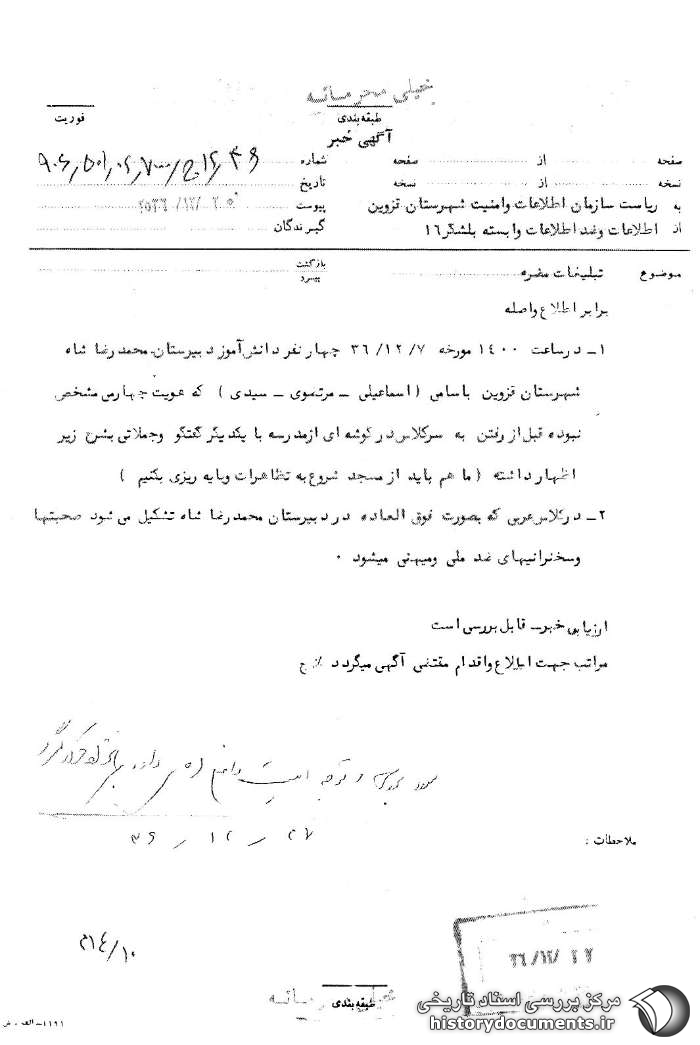 خیلی محرمانه
طبقه‌بندی
فوریت
آگهی خبر
صفحه از صفحه شماره
نسخه از نسخه تاریخ
به ریاست سازمان اطلاعات وامنیت شهرستان قزوین پیوست ۲۵۳۶/۱۲/۲۰
از اطلاعات وضد اطلاعات وابسته بلشگر۱۶ گیرندگان
موضوع تبلیغات مضره بازگشت پیرو
برابر اطلاع واصله
۱ـ درساعت ۱۴۰۰ مورخه ۳۶/۱۲/۷ چهارنفر دانش‌آموز دبیرستان محمدرضا شاه
شهرستان قزوین باسامی (اسماعیلی ـ مرتضوی ـ سیدی) که هویت چهارمی مشخص
نبوده قبل از رفتن به سرکلاس در گوشه ای ازمدرسه با یکدیگر گفتگو وجملاتی بشرح زیر
اظهار داشته (ما هم باید از مسجد شروع به تظاهرات وپایه ریزی بکنیم)
۲ـ درکلاس عربی که بصورت فوق العاده در دبیرستان محمدرضا شاه تشکیل می شود صحبتها
وسخنرانیهای ضد ملی ومیهنی میشود ۰
ارزیابی خبرـ قابل بررسی است
مراتب جهت اطلاع واقدام مقتضی آگهی میگردد
ملاحظات :
۲۷ / ۱۲ / ۳۶
۳۱۴/۱۰
۳۶/۱۲/۲۲
طبقه‌بندی
خیلی محرمانه
۱۱۹۱ـ الف ـ ش
مرکز بررسی اسناد تاریخی
historydocuments.ir